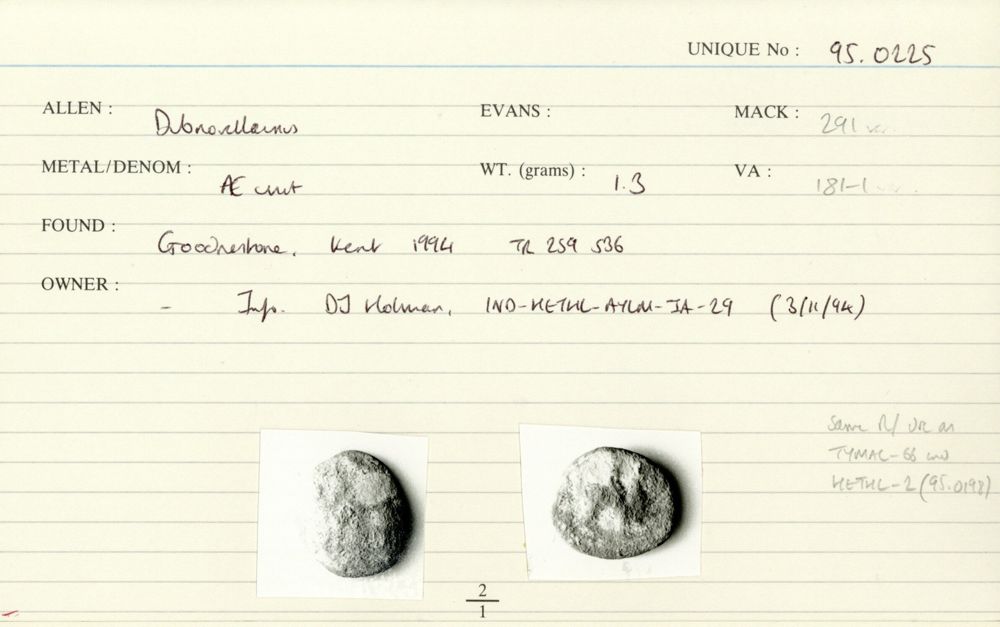 UNIQUE No : 95.0225
ALLEN : Dubnovellaunus EVANS : MACK : 291 var.
METAL/DENOM : Æ unit WT. (grams) : 1.3 VA : 181-1
FOUND : Goodnestone, Kent 1994 TR 259 536
OWNER : - Inf. DJ Holman, IND-HETHL-AYLM-IA-29 (3/11/94)
Same as
TYMAL-66 and
HETHL-2 (95.0198)
2
1